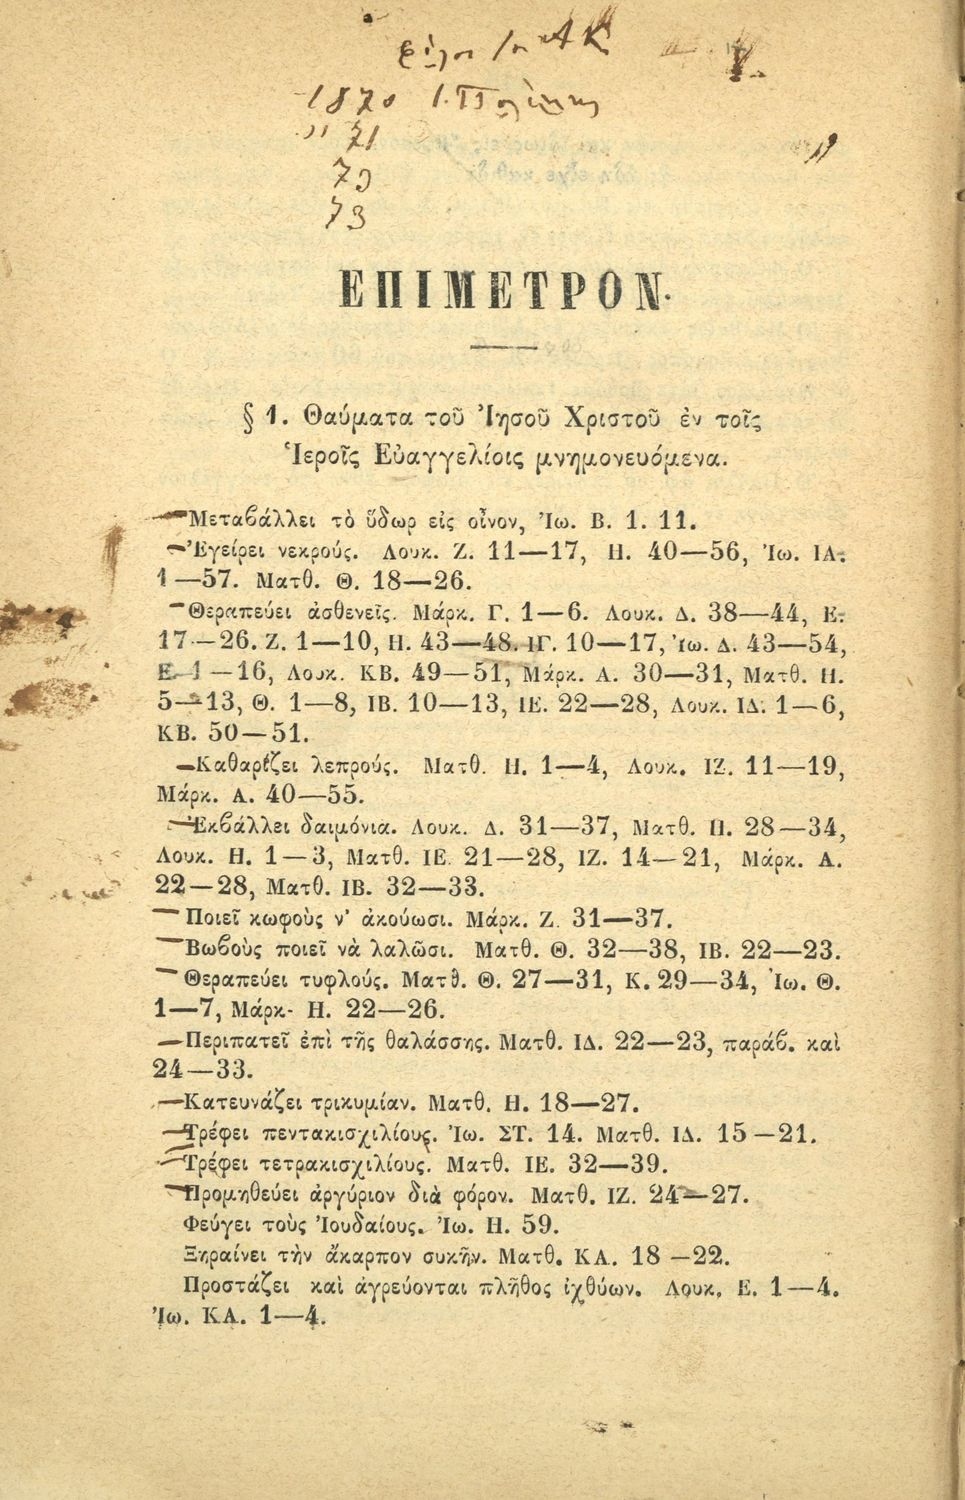 1870
" 71
73
ΕΠΙΜΕΤΡΟΝ.
§ 1. Θαύματα τοῦ Ἰησοῦ Χριστοῦ ἐν τοῖς
Ἱεροῖς Εὐαγγελίοις μνημονευόμενα.
Μεταβάλλει τὸ ὕδωρ εἰς οἶνον, Ἰω. Β. 1. 11.
Ἐγείρει νεκρούς. Λουκ. Ζ. 11—17, Η. 40—56, Ἰω. ΙΑ.
1—57. Ματθ. Θ. 18—26.
Θεραπεύει ἀσθενεῖς. Μάρκ. Γ. 1—6. Λουκ. Δ. 38—44, Ε.
17—26. Ζ. 1—10, Η. 43—48. ΙΓ. 10—17, Ἰω. Δ. 43—54,
Ε. 1—16, Λουκ. ΚΒ. 49—51, Μάρκ. Α. 30—31, Ματθ. Η.
5—13, Θ. 1—8, ΙΒ. 10—13, ΙΕ. 22—28, Λουκ. ΙΔ. 1—6,
ΚΒ. 50—51.
Καθαρίζει λεπρούς. Ματθ. Η. 1—4, Λουκ. ΙΖ. 11—19,
Μάρκ. Α. 40—55.
Ἐκβάλλει δαιμόνια. Λουκ. Δ. 31—37, Ματθ. Η. 28—34,
Λουκ. Η. 1—3, Ματθ. ΙΕ. 21—28, ΙΖ. 14—21, Μάρκ. Α.
22—28, Ματθ. ΙΒ. 32—33.
Ποιεῖ κωφοὺς ν' ἀκούωσι. Μάρκ. Ζ. 31—37.
Βωβοὺς ποιεῖ νὰ λαλῶσι. Ματθ. Θ. 32—38, ΙΒ. 22—23.
Θεραπεύει τυφλούς. Ματθ. Θ. 27—31, Κ. 29—34, Ἰω. Θ.
1—7, Μάρκ· Η. 22—26.
Περιπατεῖ ἐπὶ τῆς θαλάσσης. Ματθ. ΙΔ. 22—23, παράβ. καὶ
24—33.
Κατευνάζει τρικυμίαν. Ματθ. Η. 18—27.
Τρέφει πεντακισχιλίους. Ἰω. ΣΤ. 14. Ματθ. ΙΔ. 15—21.
Τρέφει τετρακισχιλίους. Ματθ. ΙΕ. 32—39.
Προμηθεύει ἀργύριον διὰ φόρον. Ματθ. ΙΖ. 24—27.
Φεύγει τοὺς Ἰουδαίους. Ἰω. Η. 59.
Ξηραίνει τὴν ἄκαρπον συκῆν. Ματθ. ΚΑ. 18—22.
Προστάζει καὶ ἀγρεύονται πλῆθος ἰχθύων. Λουκ. Ε. 1—4.
Ἰω. ΚΑ. 1—4.